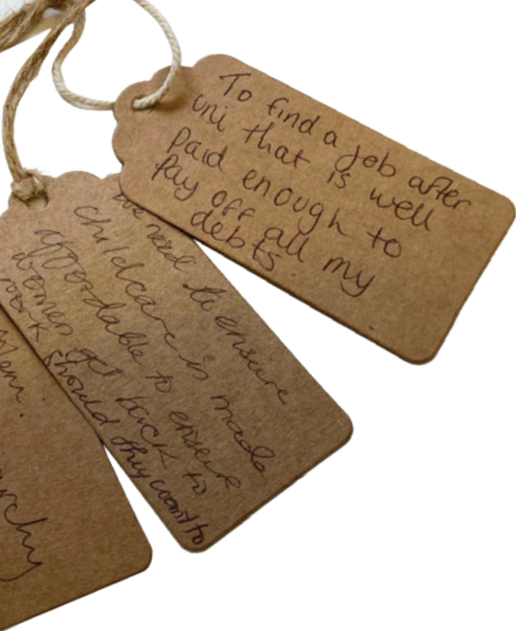 To find a job after
uni that is well
paid enough to
pay off all my
debts.
We need to ensure
childcare is made
affordable to ensure
women get back to
work should they want to
them.